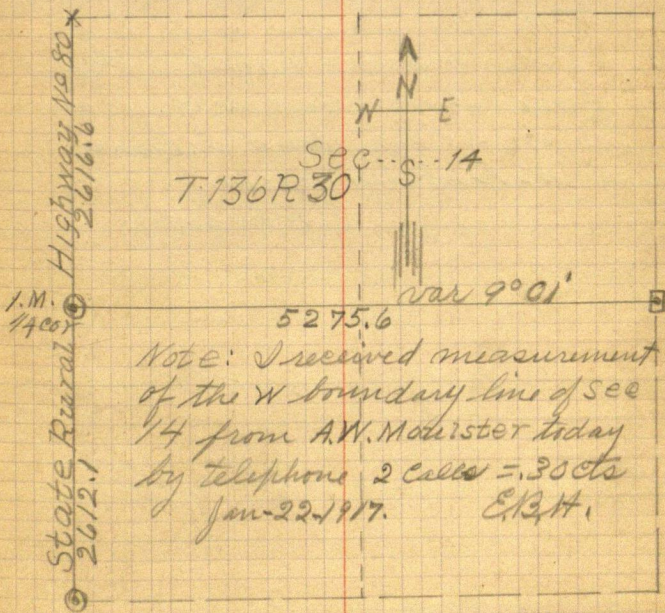 State Rural Highway No 80
2616.6
2612.1
N
W E
S
Sec 14
T 136 R 30
var 9° 01'
I.M.
1/4 cor
5275.6
Note: I received measurement
of the W boundary line of Sec
14 from A.W. today
by telephone 2 Calls = .30 cts
Jan-22-1917. E.B.H.